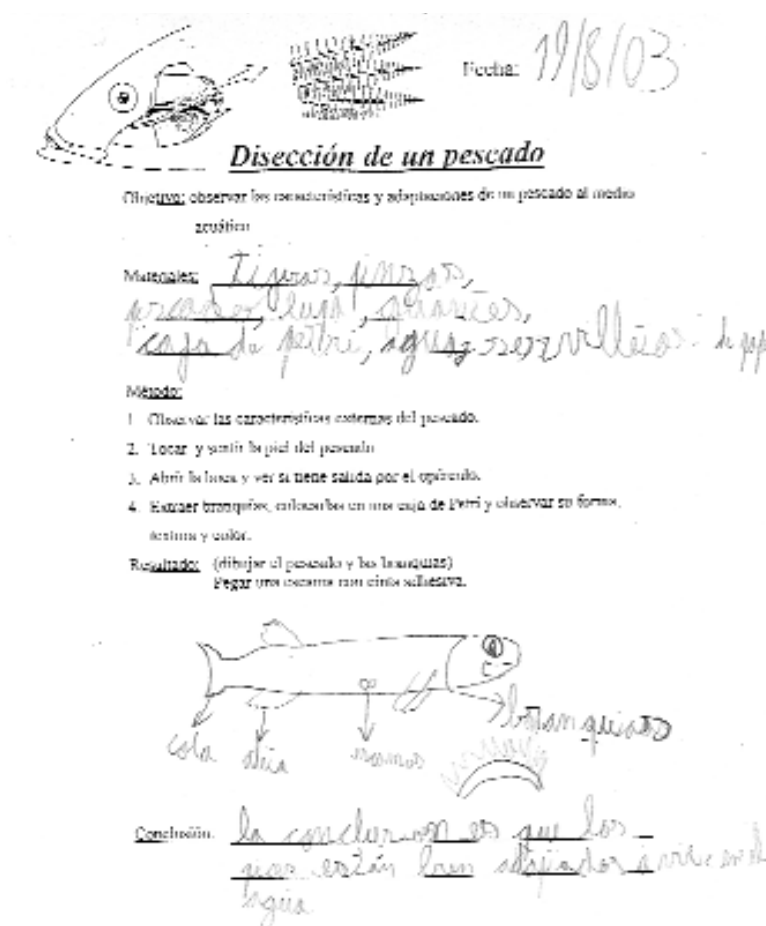 Fecha: 19/8/03
Disección de un pescado
Objetivo: observar las características y adaptaciones de un pescado al medio
acuático
Materiales: tijeras, pinzas,
lupa, guantes,
caja de petri, agua, servilletas de
Método:
1. Observar las características externas del pescado.
2. Tocar y sentir la piel del pescado
3. Abrir la boca y ver si tiene salida por el opérculo.
4. Extraer branquias, colocarlas en una caja de Petri y observar su forma,
textura y color.
Resultado: (dibujar el pescado y las branquias)
Pegar una escama con cinta adhesiva.
branquias
cola
Conclusión: la conclusion es que los
están bien a vivir en el
agua